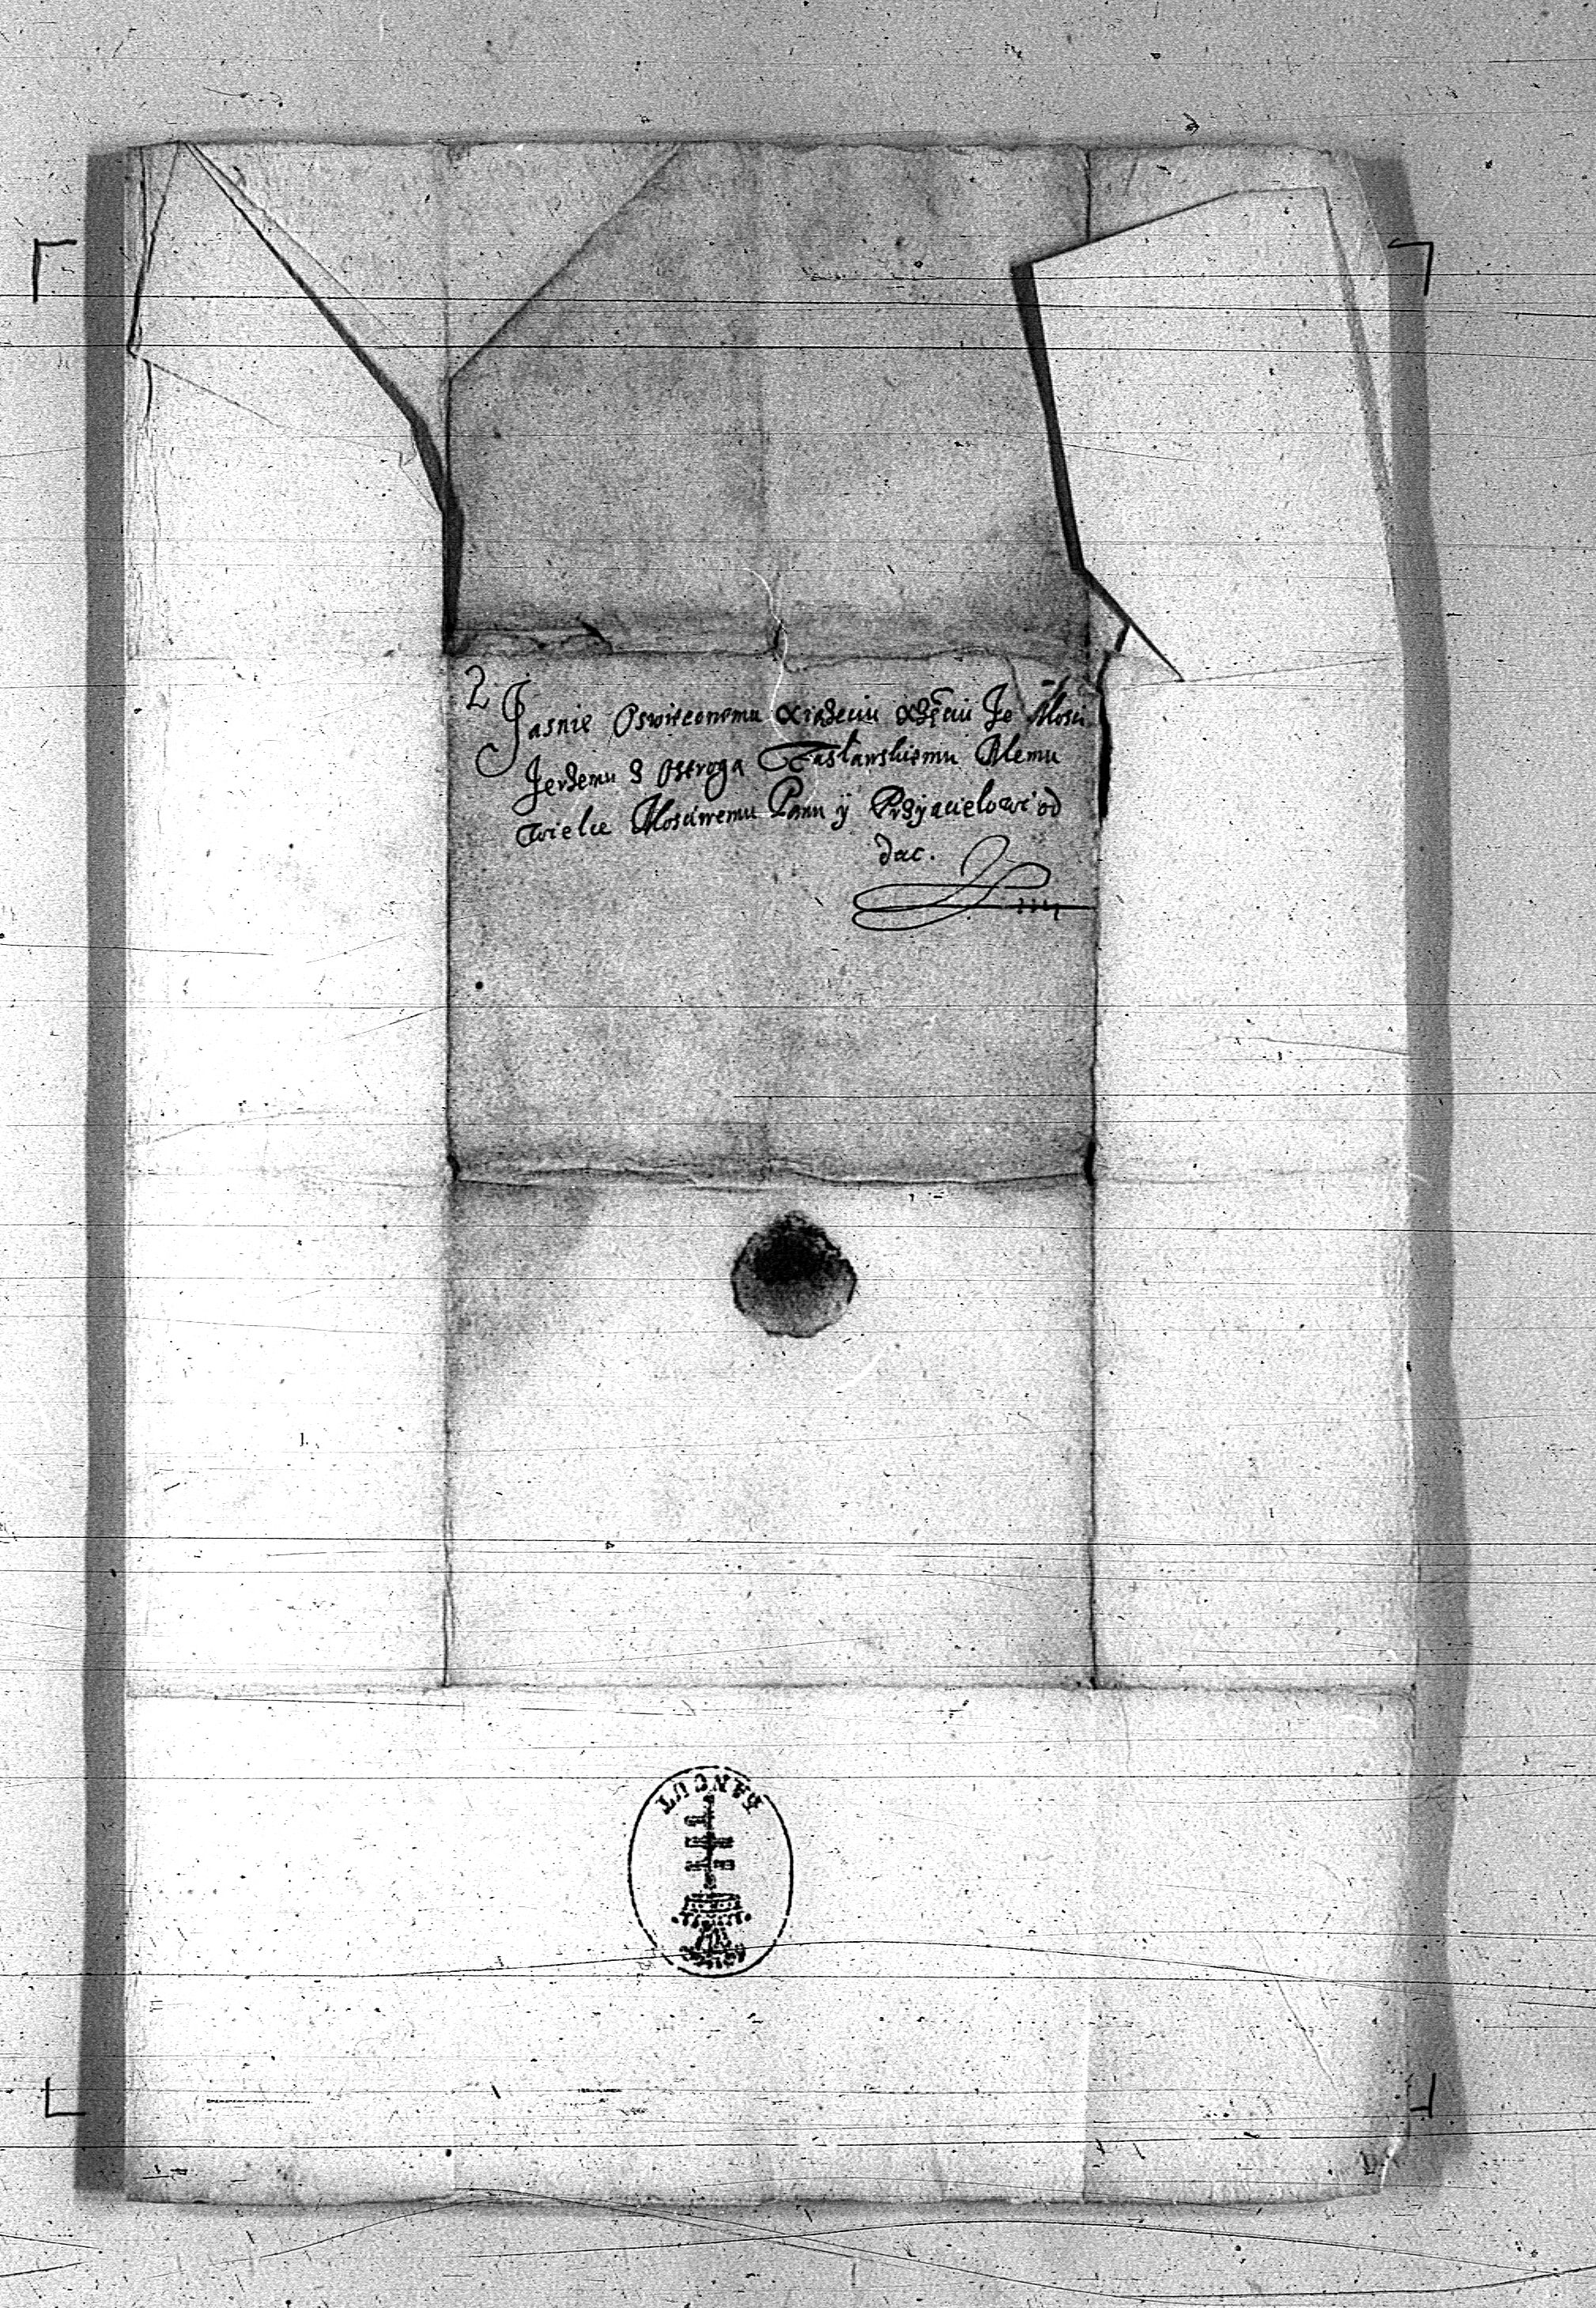 Jasnie Oswieconemu Xiązeciu Je Mosci
Jerzemu z Ostroga Zasławskiemu Memu
wielce Mosciwemu Panu ÿ Przyacielowi od
dac.
ŁANCUT